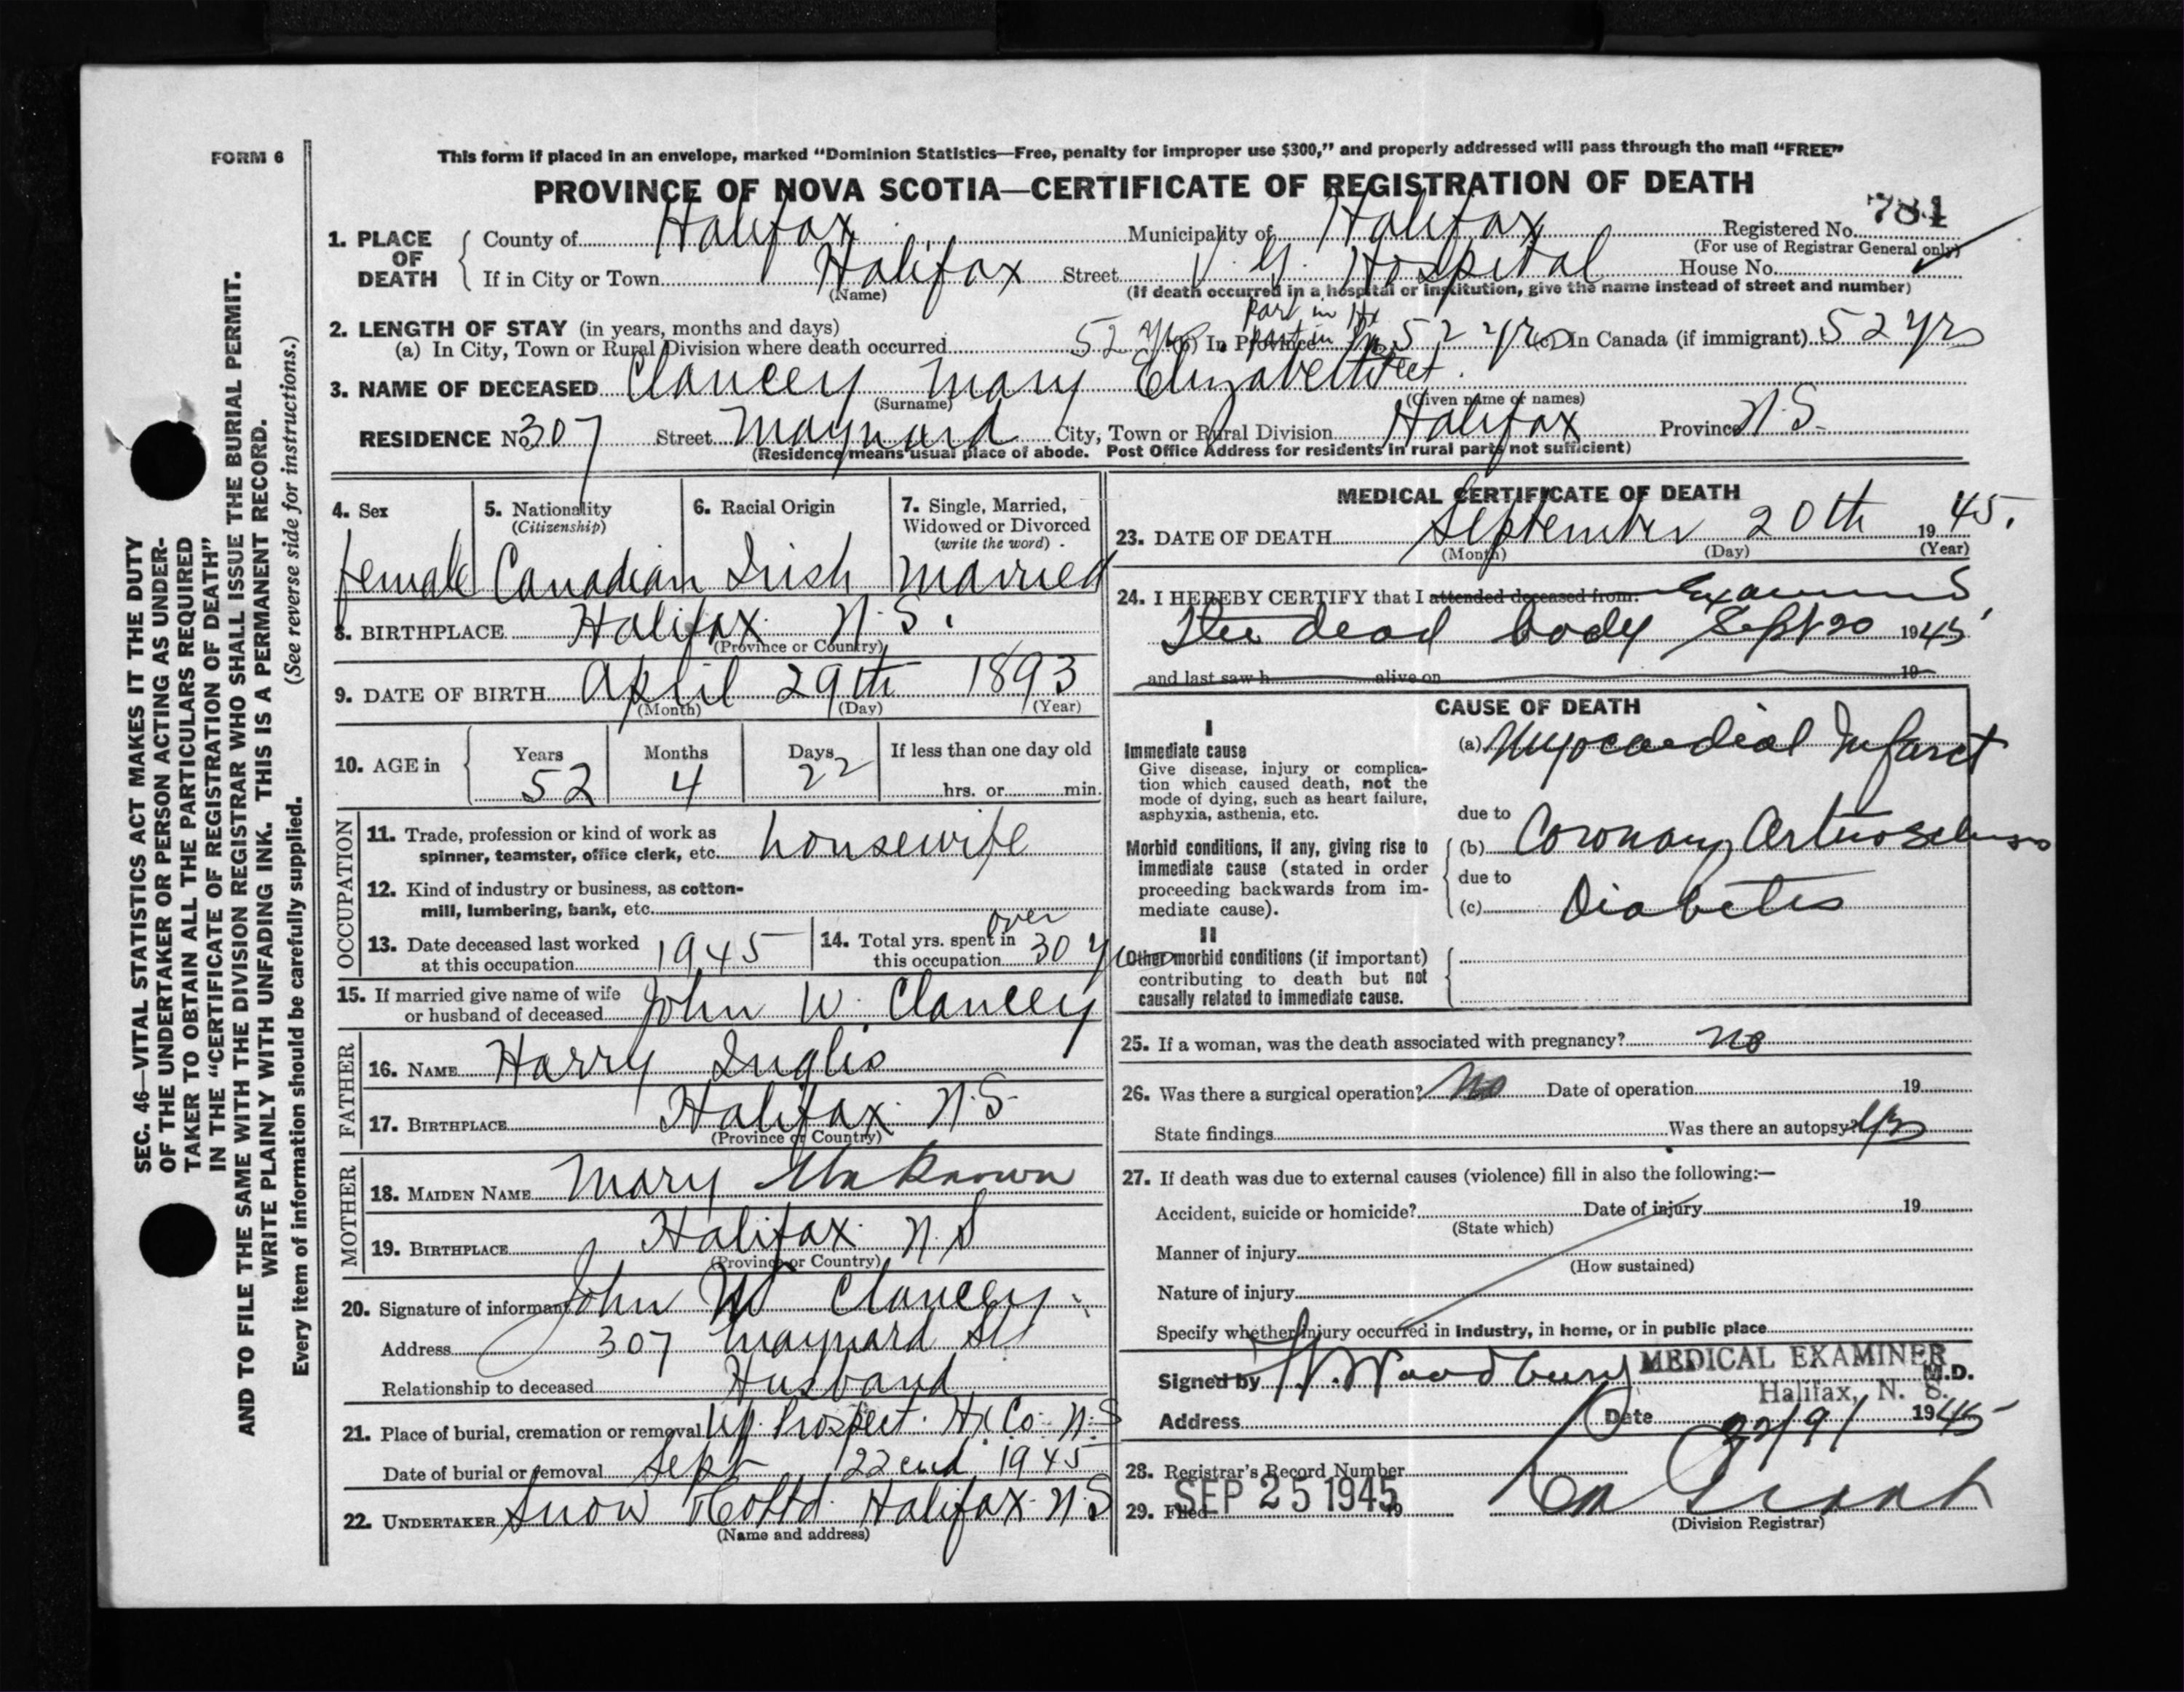 FORM 6
This form if placed in an envelope, marked “Dominion Statistics—Free, penalty for improper use $300,” and properly addressed will pass through the mail “FREE”
PROVINCE OF NOVA SCOTIA—CERTIFICATE OF REGISTRATION OF DEATH
781
1. PLACE OF DEATH County of Halifax Municipality of Halifax Registered No.
(For use of Registrar General only)
If in City or Town Halifax Street V. G. Hospital House No.
(Name) (If death occurred in a hospital or institution, give the name instead of street and number)
2. LENGTH OF STAY (in years, months and days)
(a) In City, Town or Rural Division where death occurred 52 yrs (b) In Province 52 yrs (c) In Canada (if immigrant) 52 yrs
part in Hx
part in
3. NAME OF DECEASED Clancey Mary Elizabeth
(Surname) (Given name or names)
RESIDENCE No. 307 Street Maynard City, Town or Rural Division Halifax Province N.S.
(Residence means usual place of abode. Post Office Address for residents in rural parts not sufficient)
4. Sex 5. Nationality (Citizenship) 6. Racial Origin 7. Single, Married, Widowed or Divorced (write the word)
female Canadian Irish Married
8. BIRTHPLACE Halifax N.S.
(Province or Country)
9. DATE OF BIRTH April 29th 1893
(Month) (Day) (Year)
10. AGE in Years Months Days If less than one day old
52 4 22 hrs. or min.
OCCUPATION
11. Trade, profession or kind of work as
spinner, teamster, office clerk, etc. housewife
12. Kind of industry or business, as cotton-
mill, lumbering, bank, etc.
13. Date deceased last worked
at this occupation 1945
14. Total yrs. spent in
this occupation over 30 yrs
15. If married give name of wife
or husband of deceased John W. Clancey
FATHER
16. NAME Harry Inglis
17. BIRTHPLACE Halifax N.S.
(Province or Country)
MOTHER
18. MAIDEN NAME Mary Unknown
19. BIRTHPLACE Halifax N.S
(Province or Country)
20. Signature of informant John W Clancey
Address 307 Maynard St
Relationship to deceased Husband
21. Place of burial, cremation or removal Up. Prospect. Hx Co. N.S
Date of burial or removal Sept 22end 1945
22. UNDERTAKER Snow & Co Ltd. Halifax N.S
(Name and address)
MEDICAL CERTIFICATE OF DEATH
23. DATE OF DEATH September 20th 1945.
(Month) (Day) (Year)
24. I HEREBY CERTIFY that I attended deceased from: Examined
the dead body Sept 20 1945
and last saw h alive on 19
CAUSE OF DEATH
I
Immediate cause
Give disease, injury or complica-
tion which caused death, not the
mode of dying, such as heart failure,
asphyxia, asthenia, etc.
(a) Myocardial Infarct
due to
Morbid conditions, if any, giving rise to
immediate cause (stated in order
proceeding backwards from im-
mediate cause).
(b) Coronary Arteriosclerosis
due to
(c) Diabetes
II
Other morbid conditions (if important)
contributing to death but not
causally related to immediate cause.
25. If a woman, was the death associated with pregnancy? no
26. Was there a surgical operation? No Date of operation 19
State findings Was there an autopsy? Yes
27. If death was due to external causes (violence) fill in also the following:—
Accident, suicide or homicide? Date of injury 19
(State which)
Manner of injury
(How sustained)
Nature of injury
Specify whether injury occurred in industry, in home, or in public place
Signed by Woodbury MEDICAL EXAMINER M.D.
Halifax, N. S.
Address Date 22/9/ 1945
28. Registrar's Record Number
29. Filed SEP 25 1945 19
(Division Registrar)
SEC. 46—VITAL STATISTICS ACT MAKES IT THE DUTY
OF THE UNDERTAKER OR PERSON ACTING AS UNDER-
TAKER TO OBTAIN ALL THE PARTICULARS REQUIRED
IN THE “CERTIFICATE OF REGISTRATION OF DEATH”
AND TO FILE THE SAME WITH THE DIVISION REGISTRAR WHO SHALL ISSUE THE BURIAL PERMIT.
WRITE PLAINLY WITH UNFADING INK. THIS IS A PERMANENT RECORD.
(See reverse side for instructions.)
Every item of information should be carefully supplied.